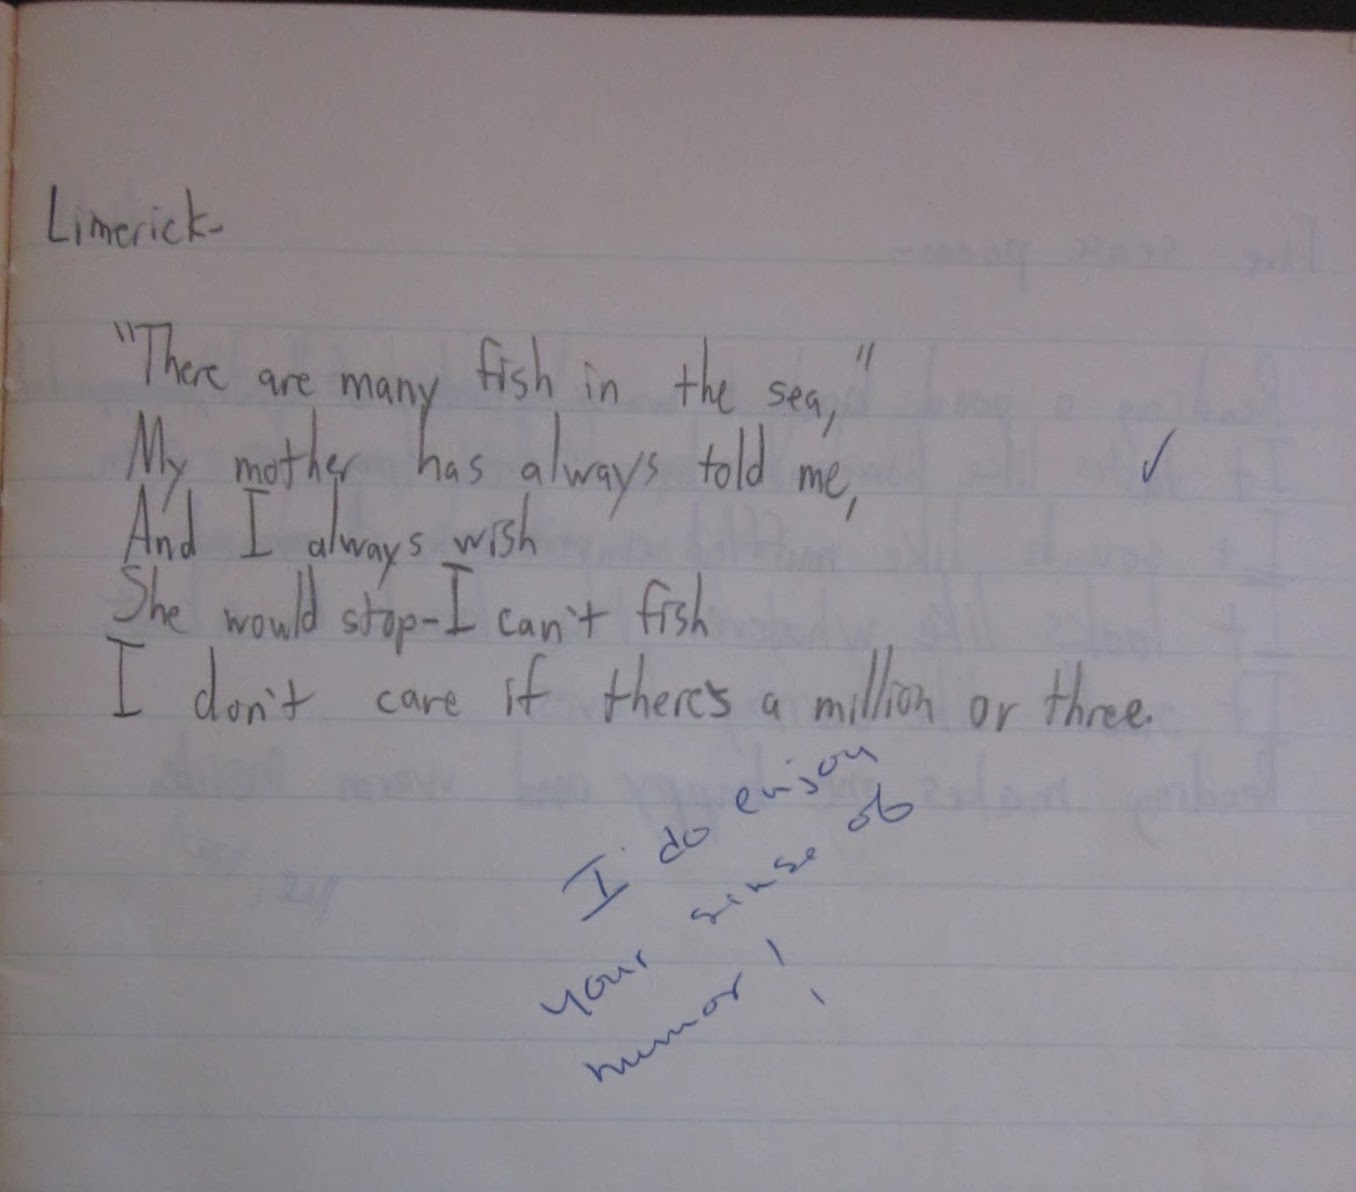 Limerick-
"There are many fish in the sea,"
My mother has always told me,
And I always wish
She would stop-I can't fish
I don't care if there's a million or three.
I do enjoy
your sense of
humor!